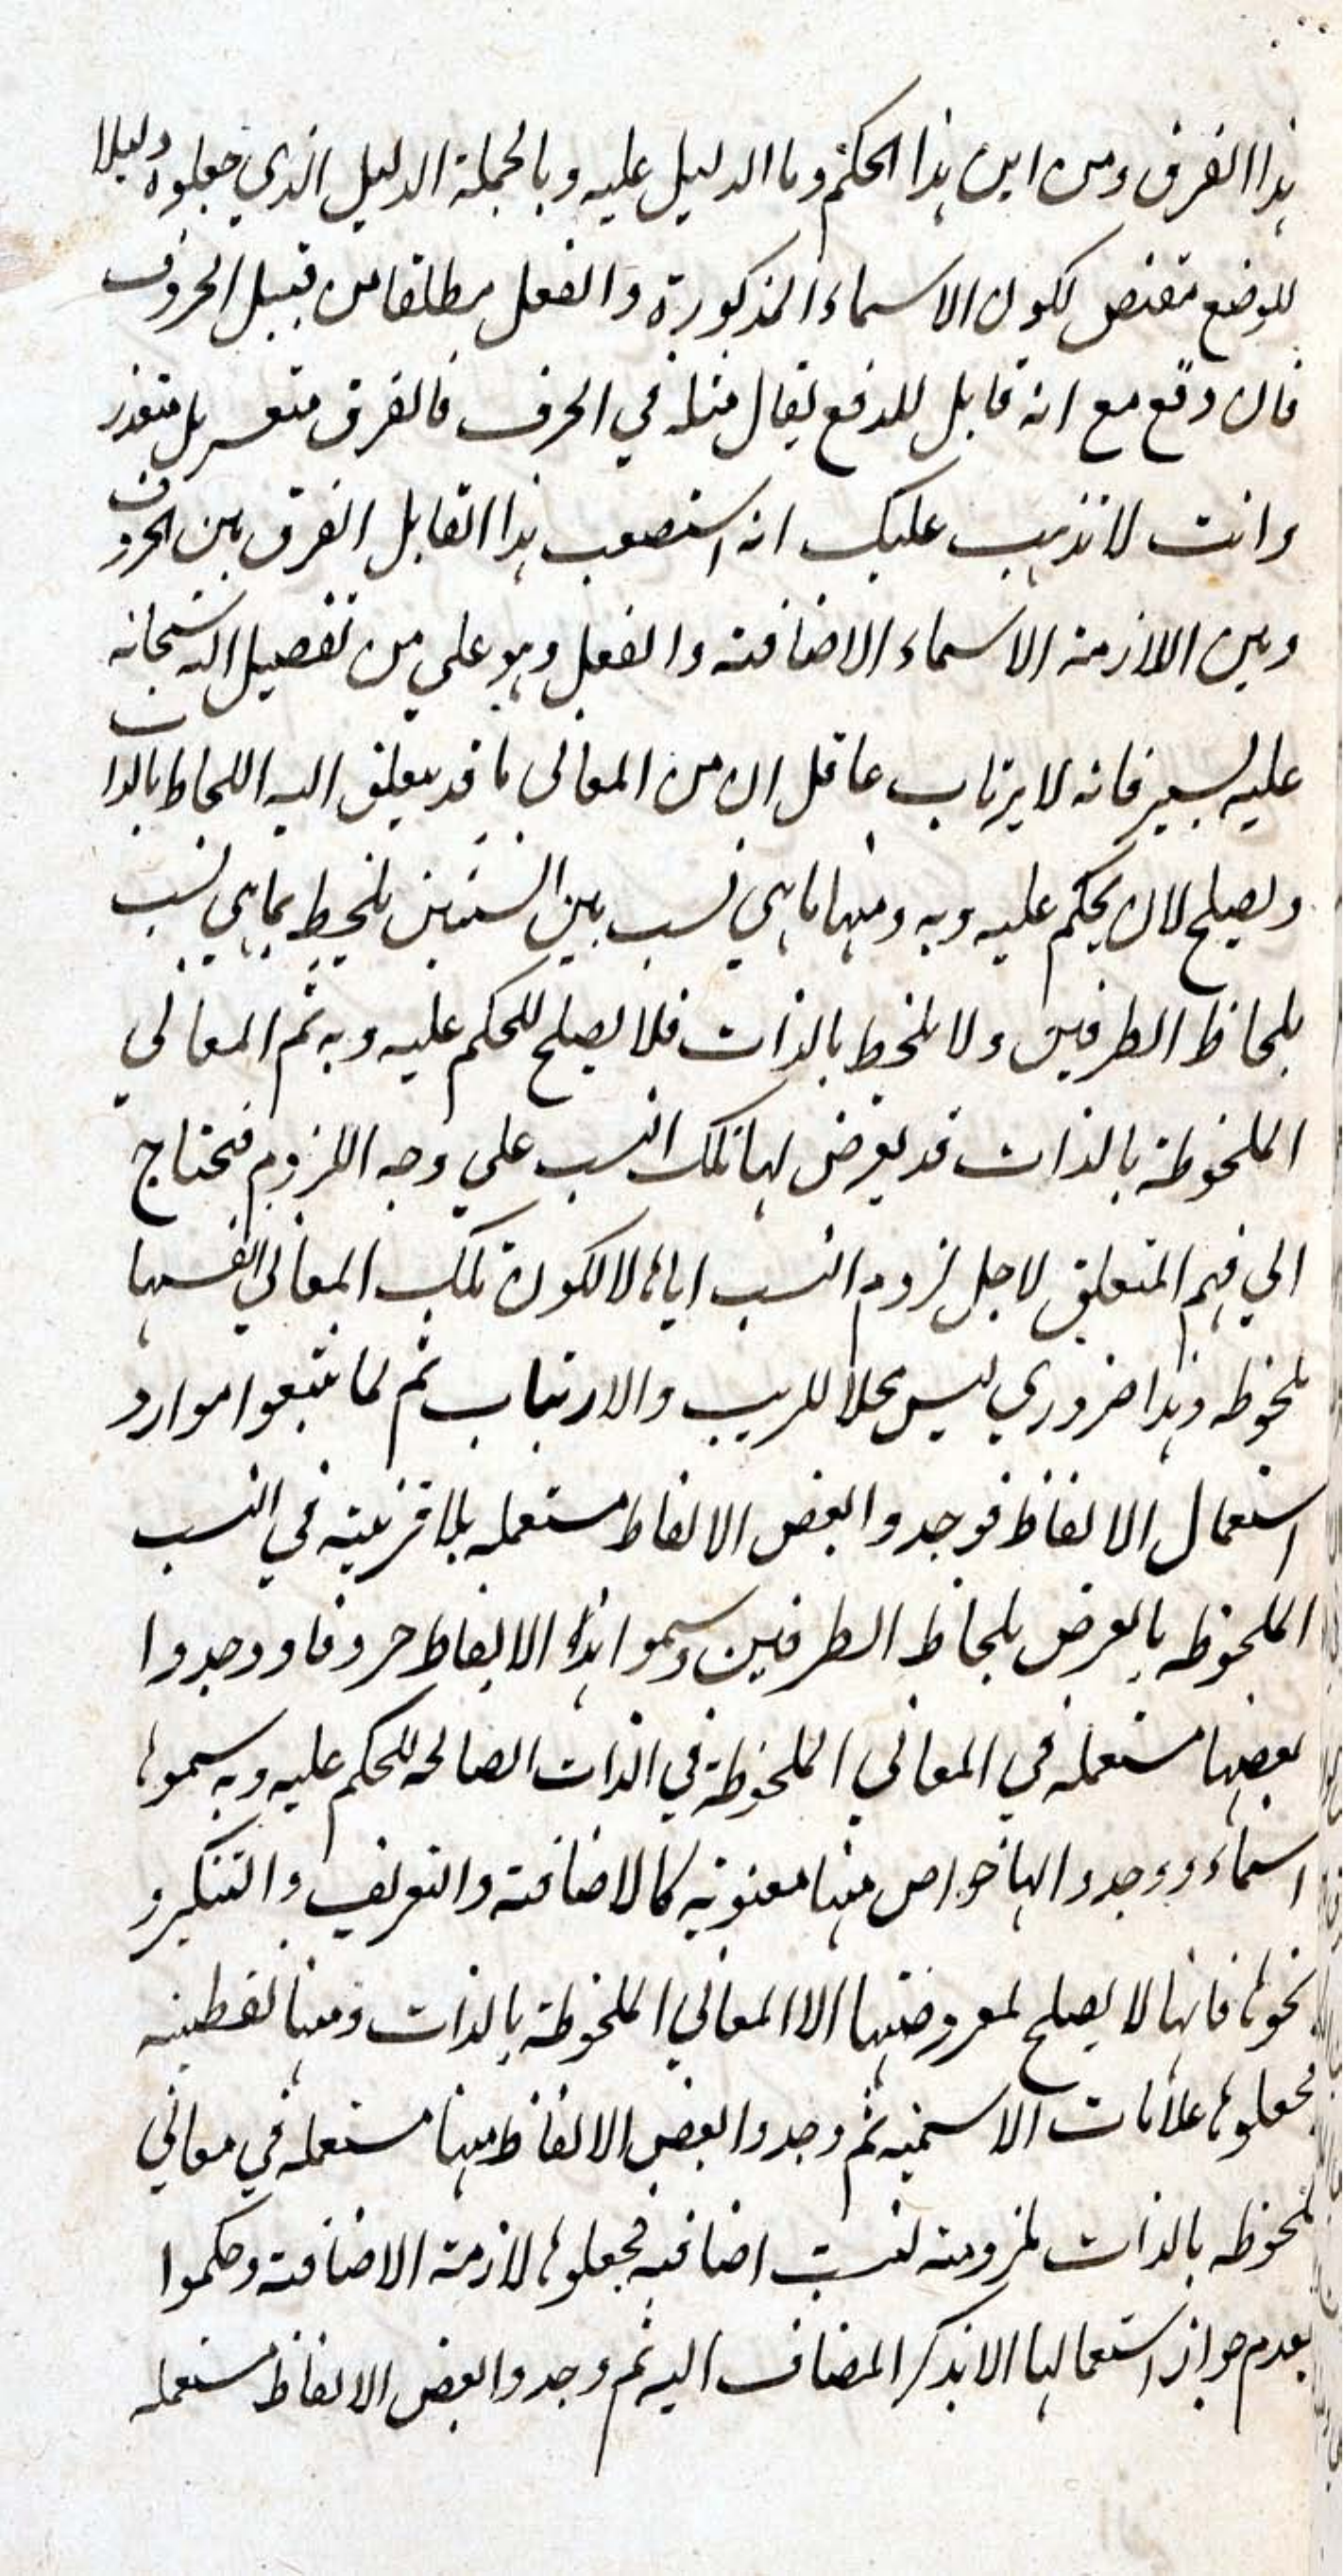 هذا الفرق ومن اين هذا الحكم وما الدليل عليه وبالجملة الدليل الذي جعلوه دليلا
للوضع مقتض لكون الاسماء المذكورة والفعل مطلقا من قبيل الحروف
فان دفع مع انه قابل للدفع يقال مثله في الحرف فالفرق متعسر بل متعذر
وانت لا تذهب عليك انه استصعب هذا القابل الفرق بين الحروف
وبين اللازمة الاسماء الاضافة والفعل وهو على من تفضيل الله سبحانه
عليه يسير فانه لا يرتاب عاقل ان من المعاني ما قد يتعلق اليه اللحاظ بالذات
ويصلح لان يحكم عليه وبه ومنها ما هي نسب بين الشيئين يلحظ بما هي نسب
بلحاظ الطرفين ولا يلحظ بالذات فلا يصلح للحكم عليه وبه ثم المعاني
الملحوظة بالذات قد يعرض لها تلك النسب على وجه اللزوم فيحتاج
الي فهم المتعلق لاجل لزوم النسب اياها لا لكون تلك المعاني انفسها
ملحوظه وهذا ضروري ليس محلا للريب والارتياب ثم لما تتبعوا موارد
استعمال الالفاظ فوجدوا بعض الالفاظ مستعمله بلا قرينة في النسب
الملحوظه بالعرض بلحاظ الطرفين وسموا هذه الالفاظ حروفا ووجدوا
بعضها مستعمله في المعاني الملحوظة في الذات الصالحه للحكم عليه وبه سموها
اسماء ووجدوا لها خواص منها معنوية كالاضافة والتعريف والتنكير و
نحوها فانها لا يصلح لمعروضيتها الا المعاني الملحوظة بالذات ومنها لفظيه
فجعلوها علامات الاسميه ثم وجدوا بعض الالفاظ منها مستعمله في معاني
ملحوظه بالذات ملزومة لنسب اضافيه فجعلوها لازمة الاضافة وحكموا
بعدم جواز استعمالها الا بذكر المضاف اليه ثم وجدوا بعض الالفاظ مستعمله